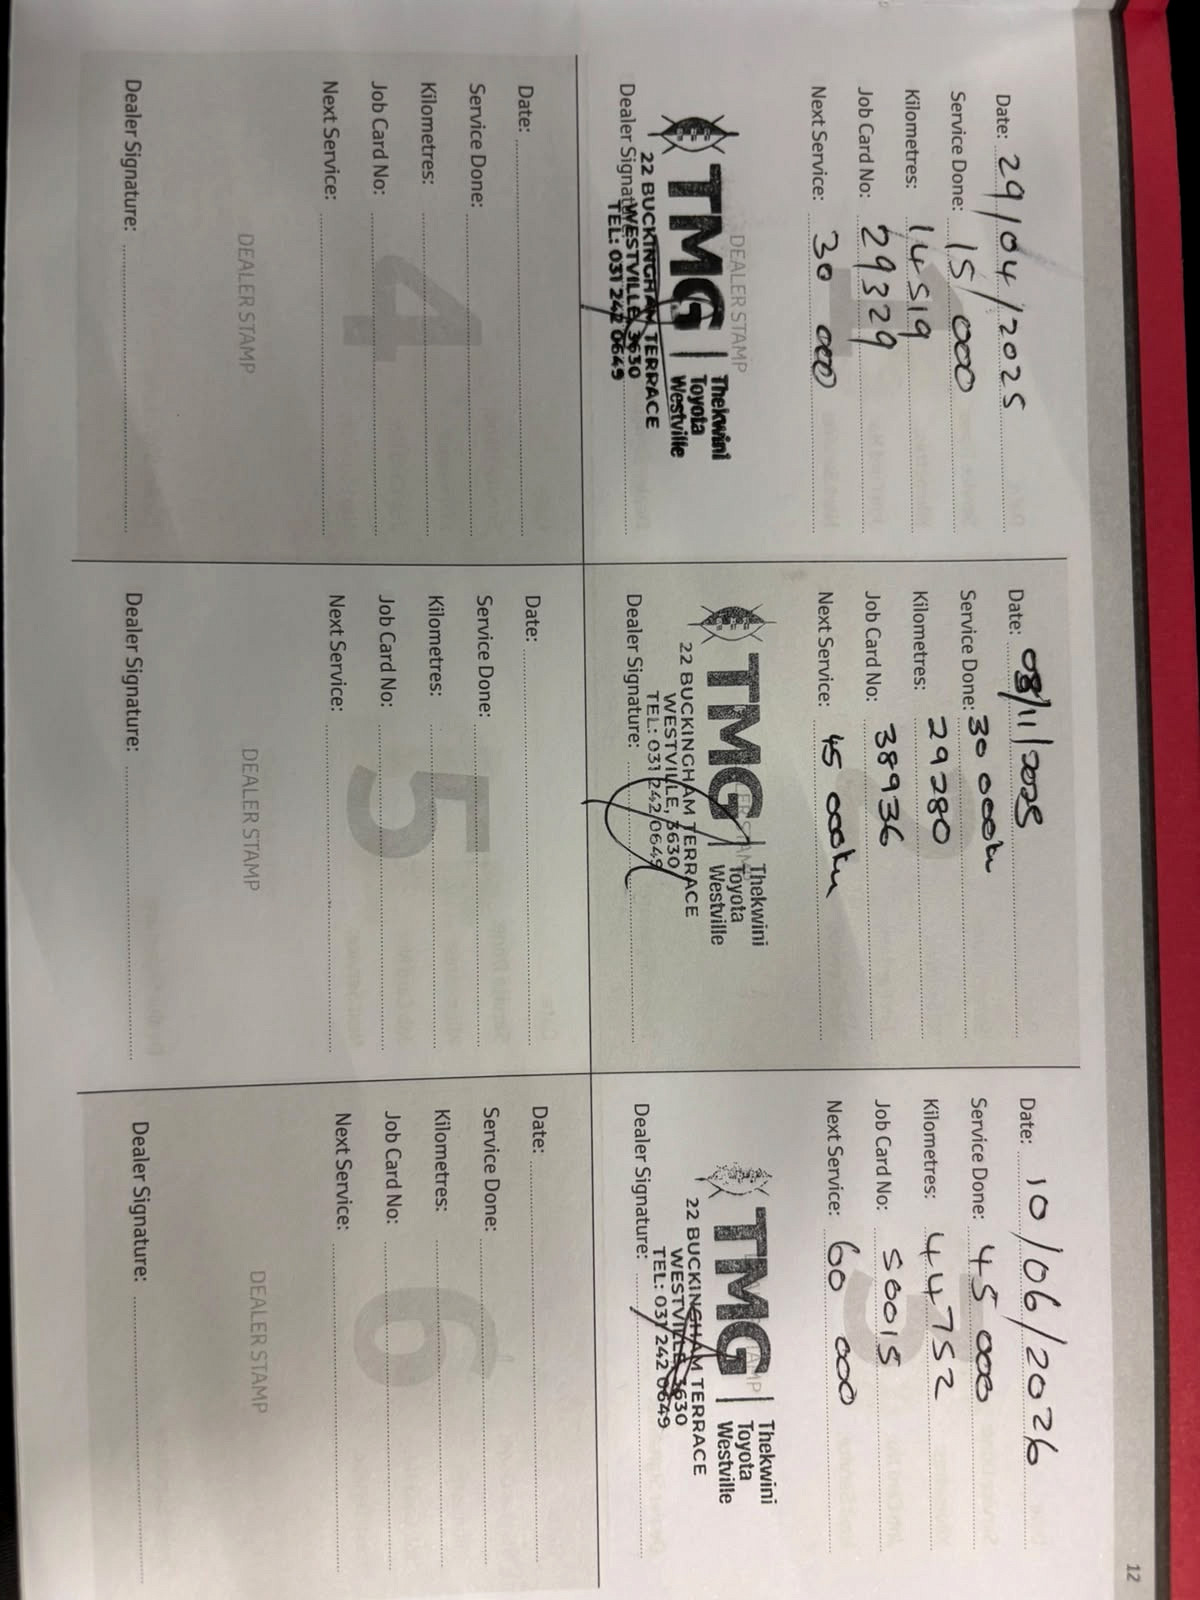 12
Date: 29/04/2025
Service Done: 15 000
Kilometres: 14519
Job Card No: 29329
Next Service: 30 000
DEALER STAMP
TMG | Thekwini Toyota Westville
22 BUCKINGHAM TERRACE
WESTVILLE, 3630
TEL: 031 242 0649
Dealer Signature:
Date: 08/11/2025
Service Done: 30 000km
Kilometres: 29280
Job Card No: 38936
Next Service: 45 000km
DEALER STAMP
TMG | Thekwini Toyota Westville
22 BUCKINGHAM TERRACE
WESTVILLE, 3630
TEL: 031 242 0649
Dealer Signature:
3
Date: 10/06/2026
Service Done: 45 000
Kilometres: 44752
Job Card No: 50015
Next Service: 60 000
STAMP
TMG | Thekwini Toyota Westville
22 BUCKINGHAM TERRACE
WESTVILLE, 3630
TEL: 031 242 0649
Dealer Signature:
4
Date:
Service Done:
Kilometres:
Job Card No:
Next Service:
DEALER STAMP
Dealer Signature:
5
Date:
Service Done:
Kilometres:
Job Card No:
Next Service:
DEALER STAMP
Dealer Signature:
6
Date:
Service Done:
Kilometres:
Job Card No:
Next Service:
DEALER STAMP
Dealer Signature: